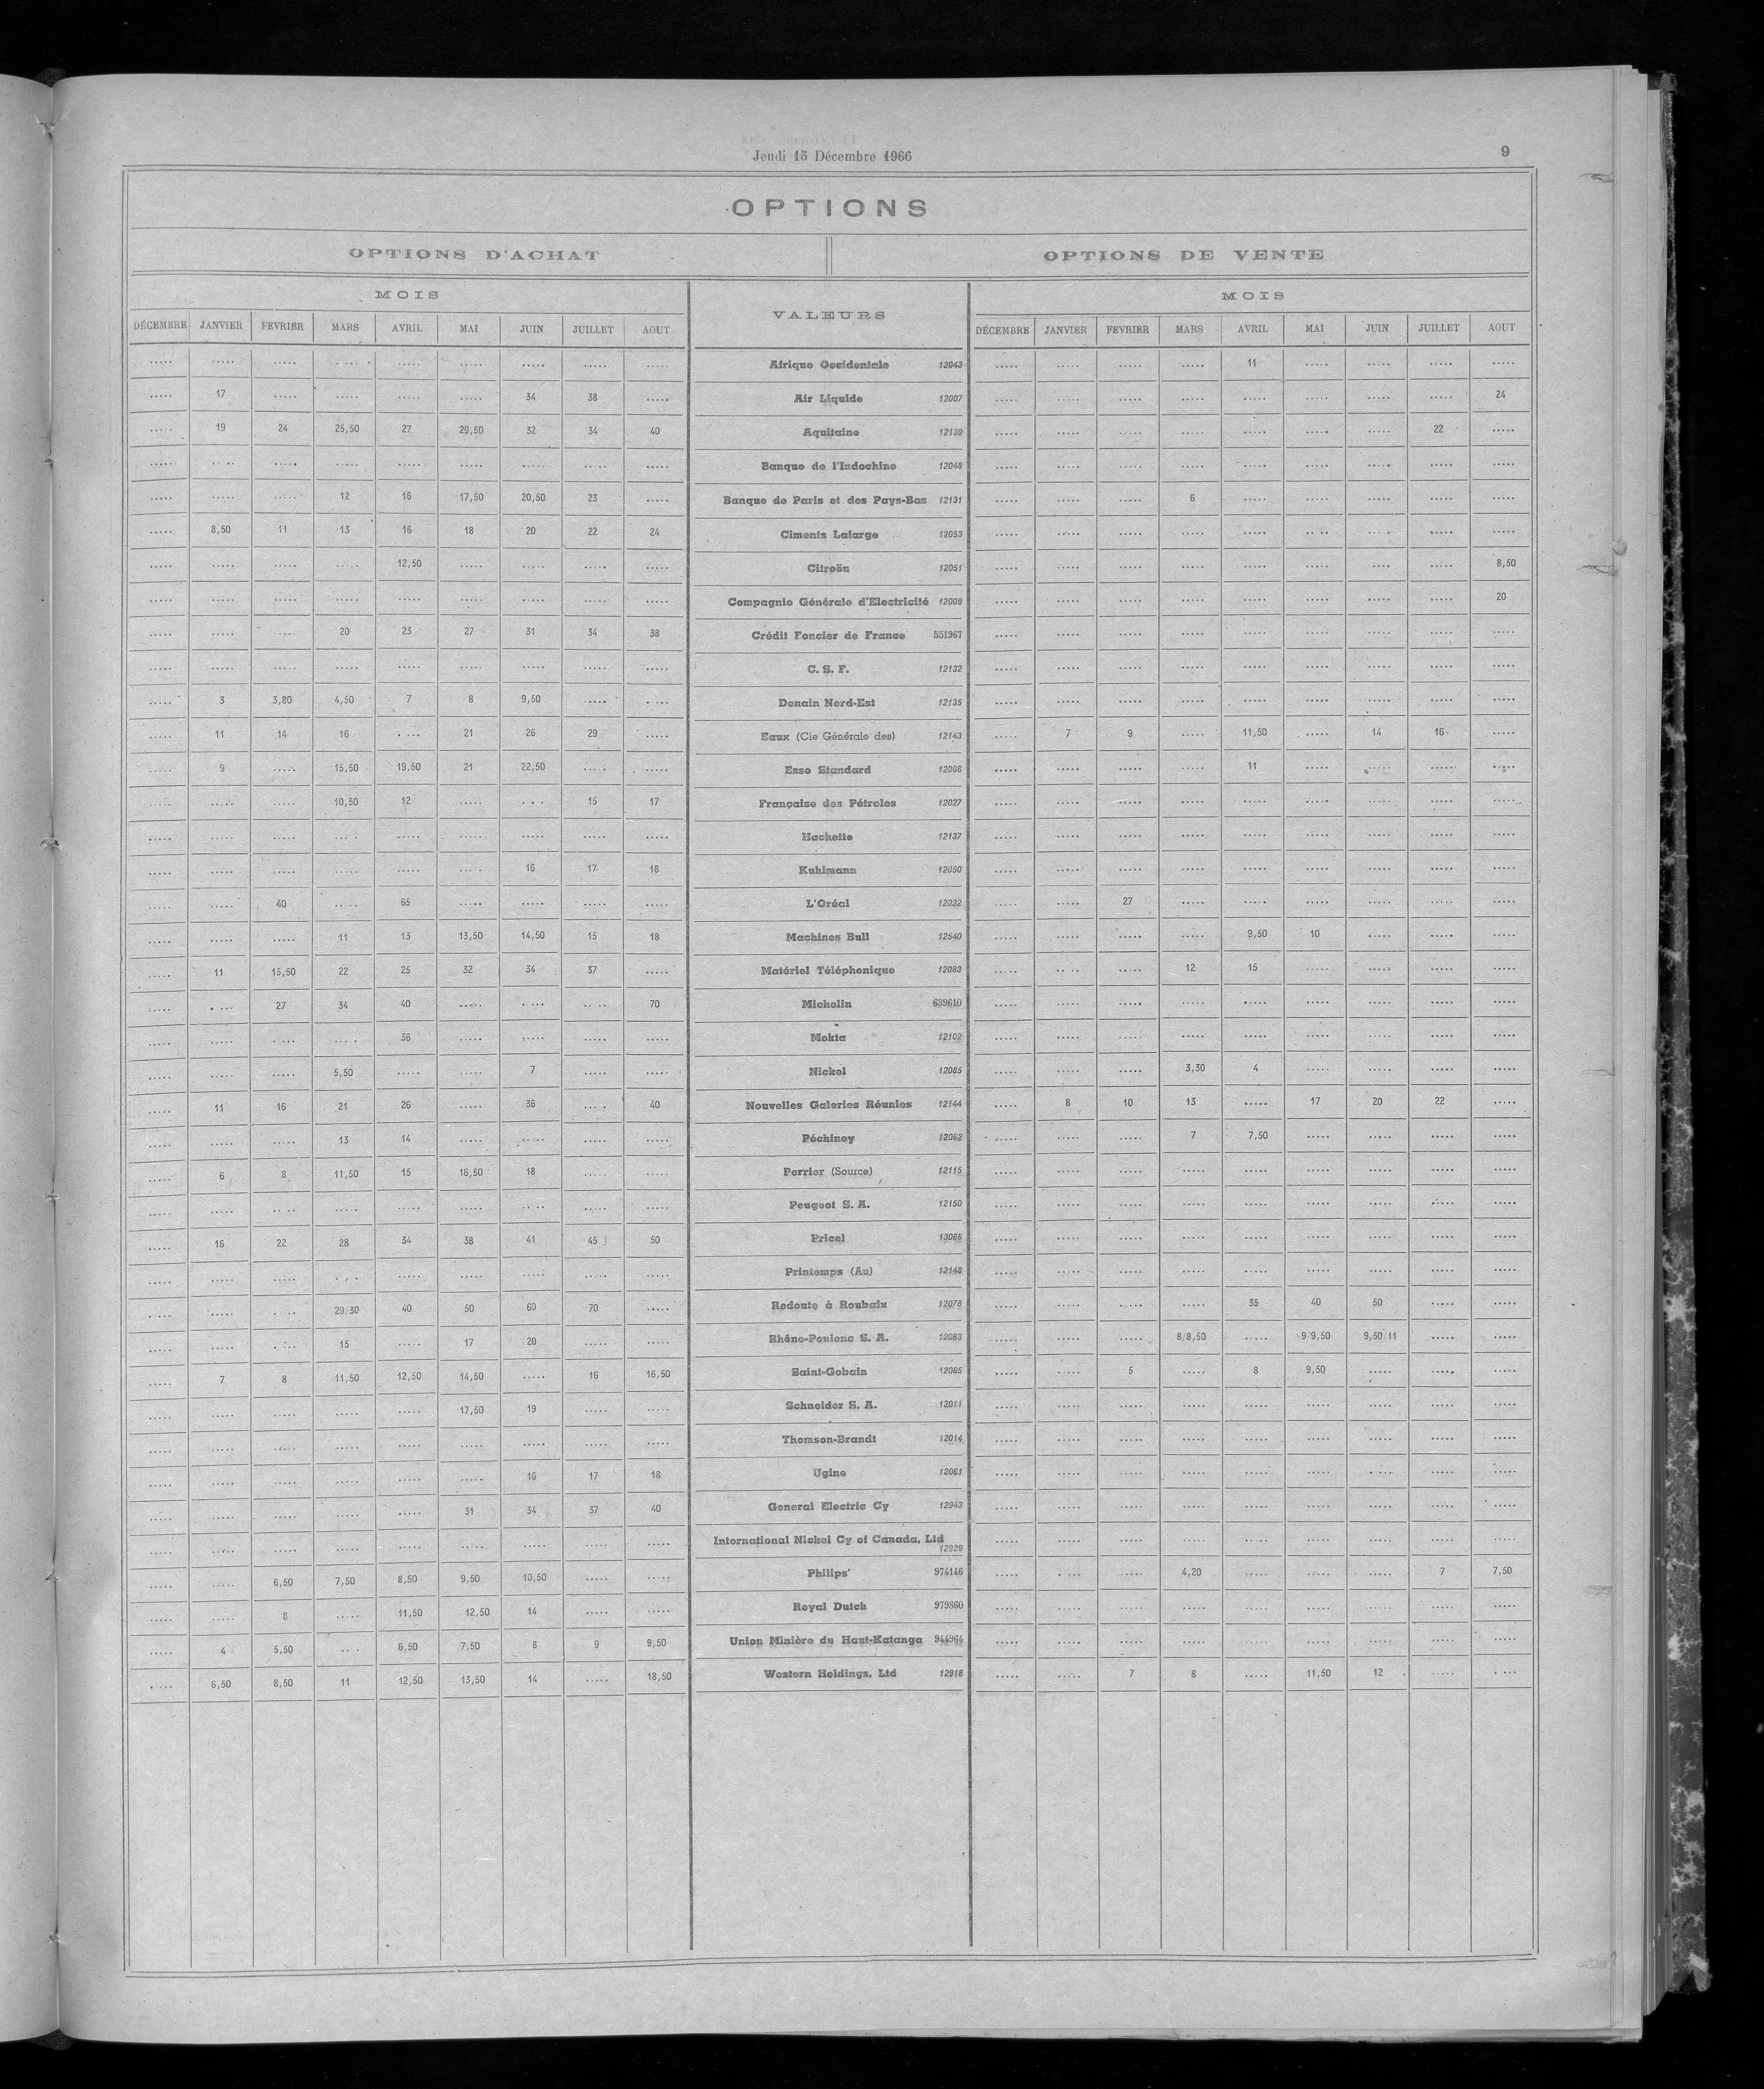 Jeudi 15 Décembre 1966 9
OPTIONS
OPTIONS D'ACHAT OPTIONS DE VENTE
MOIS VALEURS MOIS
DÉCEMBRE JANVIER FEVRIER MARS AVRIL MAI JUIN JUILLET AOUT DÉCEMBRE JANVIER FEVRIER MARS AVRIL MAI JUIN JUILLET AOUT
..... ..... ..... ..... ..... ..... ..... ..... ..... Afrique Occidentale 12043 ..... ..... ..... ..... 11 ..... ..... ..... .....
..... 17 ..... ..... ..... ..... 34 38 ..... Air Liquide 12007 ..... ..... ..... ..... ..... ..... ..... ..... 24
..... 19 24 25,50 27 29,50 32 34 40 Aquitaine 12139 ..... ..... ..... ..... ..... ..... ..... 22 .....
..... ..... ..... ..... ..... ..... ..... ..... ..... Banque de l'Indochine 12048 ..... ..... ..... ..... ..... ..... ..... ..... .....
..... ..... ..... 12 16 17,50 20,50 23 ..... Banque de Paris et des Pays-Bas 12131 ..... ..... ..... 6 ..... ..... ..... ..... .....
..... 8,50 11 13 16 18 20 22 24 Ciments Lafarge 12053 ..... ..... ..... ..... ..... ..... ..... ..... .....
..... ..... ..... ..... 12,50 ..... ..... ..... ..... Citroën 12051 ..... ..... ..... ..... ..... ..... ..... ..... 8,50
..... ..... ..... ..... ..... ..... ..... ..... ..... Compagnie Générale d'Electricité 12009 ..... ..... ..... ..... ..... ..... ..... ..... 20
..... ..... ..... 20 23 27 31 34 38 Crédit Foncier de France 551967 ..... ..... ..... ..... ..... ..... ..... ..... .....
..... ..... ..... ..... ..... ..... ..... ..... ..... C. S. F. 12132 ..... ..... ..... ..... ..... ..... ..... ..... .....
..... 3 3,80 4,50 7 8 9,50 ..... ..... Denain Nord-Est 12135 ..... ..... ..... ..... ..... ..... ..... ..... .....
..... 11 14 16 ..... 21 26 29 ..... Eaux (Cie Générale des) 12143 ..... 7 9 ..... 11,50 ..... 14 16 .....
..... 9 ..... 15,50 19,50 21 22,50 ..... ..... Esso Standard 12066 ..... ..... ..... ..... 11 ..... ..... ..... .....
..... ..... ..... 10,50 12 ..... ..... 15 17 Française des Pétroles 12027 ..... ..... ..... ..... ..... ..... ..... ..... .....
..... ..... ..... ..... ..... ..... ..... ..... ..... Hachette 12137 ..... ..... ..... ..... ..... ..... ..... ..... .....
..... ..... ..... ..... ..... ..... 16 17 18 Kuhlmann 12050 ..... ..... ..... ..... ..... ..... ..... ..... .....
..... ..... 40 ..... 65 ..... ..... ..... ..... L'Oréal 12032 ..... ..... 27 ..... ..... ..... ..... ..... .....
..... ..... ..... 11 13 13,50 14,50 15 18 Machines Bull 12540 ..... ..... ..... ..... 9,50 10 ..... ..... .....
..... 11 15,50 22 25 32 34 37 ..... Matériel Téléphonique 12083 ..... ..... ..... 12 15 ..... ..... ..... .....
..... ..... 27 34 40 ..... ..... ..... 70 Michelin 639610 ..... ..... ..... ..... ..... ..... ..... ..... .....
..... ..... ..... ..... 36 ..... ..... ..... ..... Mokta 12102 ..... ..... ..... ..... ..... ..... ..... ..... .....
..... ..... ..... 5,50 ..... ..... 7 ..... ..... Nickel 12085 ..... ..... ..... 3,30 4 ..... ..... ..... .....
..... 11 16 21 26 ..... 36 ..... 40 Nouvelles Galeries Réunies 12144 ..... 8 10 13 ..... 17 20 22 .....
..... ..... ..... 13 14 ..... ..... ..... ..... Péchiney 12062 ..... ..... ..... 7 7,50 ..... ..... ..... .....
..... 6 8 11,50 15 16,50 18 ..... ..... Perrier (Source) 12115 ..... ..... ..... ..... ..... ..... ..... ..... .....
..... ..... ..... ..... ..... ..... ..... ..... ..... Peugeot S. A. 12150 ..... ..... ..... ..... ..... ..... ..... ..... .....
..... 16 22 28 34 38 41 45 50 Pricel 13066 ..... ..... ..... ..... ..... ..... ..... ..... .....
..... ..... ..... ..... ..... ..... ..... ..... ..... Printemps (Au) 12148 ..... ..... ..... ..... ..... ..... ..... ..... .....
..... ..... ..... 29/30 40 50 60 70 ..... Redoute à Roubaix 12078 ..... ..... ..... ..... 35 40 50 ..... .....
..... ..... ..... 15 ..... 17 20 ..... ..... Rhône-Poulenc S. A. 12063 ..... ..... ..... 8/8,50 ..... 9/9,50 9,50/11 ..... .....
..... 7 8 11,50 12,50 14,50 ..... 16 16,50 Saint-Gobain 12065 ..... ..... 5 ..... 8 9,50 ..... ..... .....
..... ..... ..... ..... ..... 17,50 19 ..... ..... Schneider S. A. 12011 ..... ..... ..... ..... ..... ..... ..... ..... .....
..... ..... ..... ..... ..... ..... ..... ..... ..... Thomson-Brandt 12014 ..... ..... ..... ..... ..... ..... ..... ..... .....
..... ..... ..... ..... ..... ..... 16 17 18 Ugine 12061 ..... ..... ..... ..... ..... ..... ..... ..... .....
..... ..... ..... ..... ..... 31 34 37 40 General Electric Cy 12943 ..... ..... ..... ..... ..... ..... ..... ..... .....
..... ..... ..... ..... ..... ..... ..... ..... ..... International Nickel Cy of Canada, Ltd 12929 ..... ..... ..... ..... ..... ..... ..... ..... .....
..... ..... 6,50 7,50 8,50 9,50 10,50 ..... ..... Philips' 974146 ..... ..... ..... 4,20 ..... ..... ..... 7 7,50
..... ..... 8 ..... 11,50 12,50 14 ..... ..... Royal Dutch 979860 ..... ..... ..... ..... ..... ..... ..... ..... .....
..... 4 5,50 ..... 6,50 7,50 8 9 9,50 Union Minière du Haut-Katanga 944964 ..... ..... ..... ..... ..... ..... ..... ..... .....
..... 6,50 8,50 11 12,50 13,50 14 ..... 18,50 Western Holdings, Ltd 12918 ..... ..... 7 8 ..... 11,50 12 ..... .....